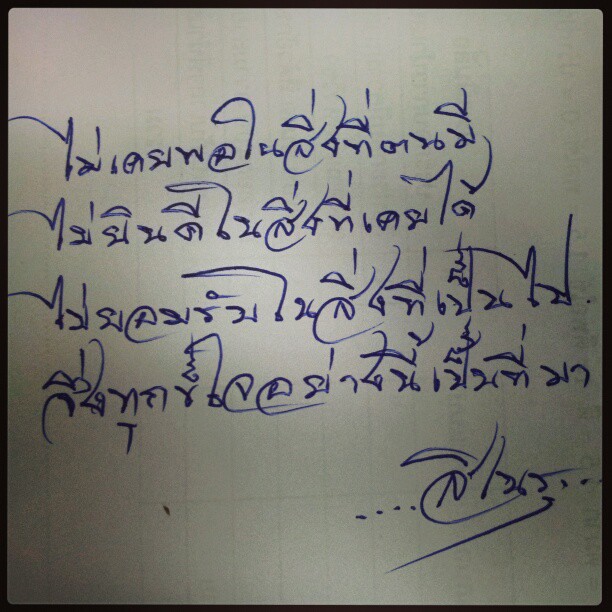 ไม่เคยพอในสิ่งที่ตนมี
ไม่ยินดีในสิ่งที่เคยได้
ไม่ยอมรับในสิ่งที่เป็นไป
จึงทุกข์ใจอย่างนี้เป็นที่มา